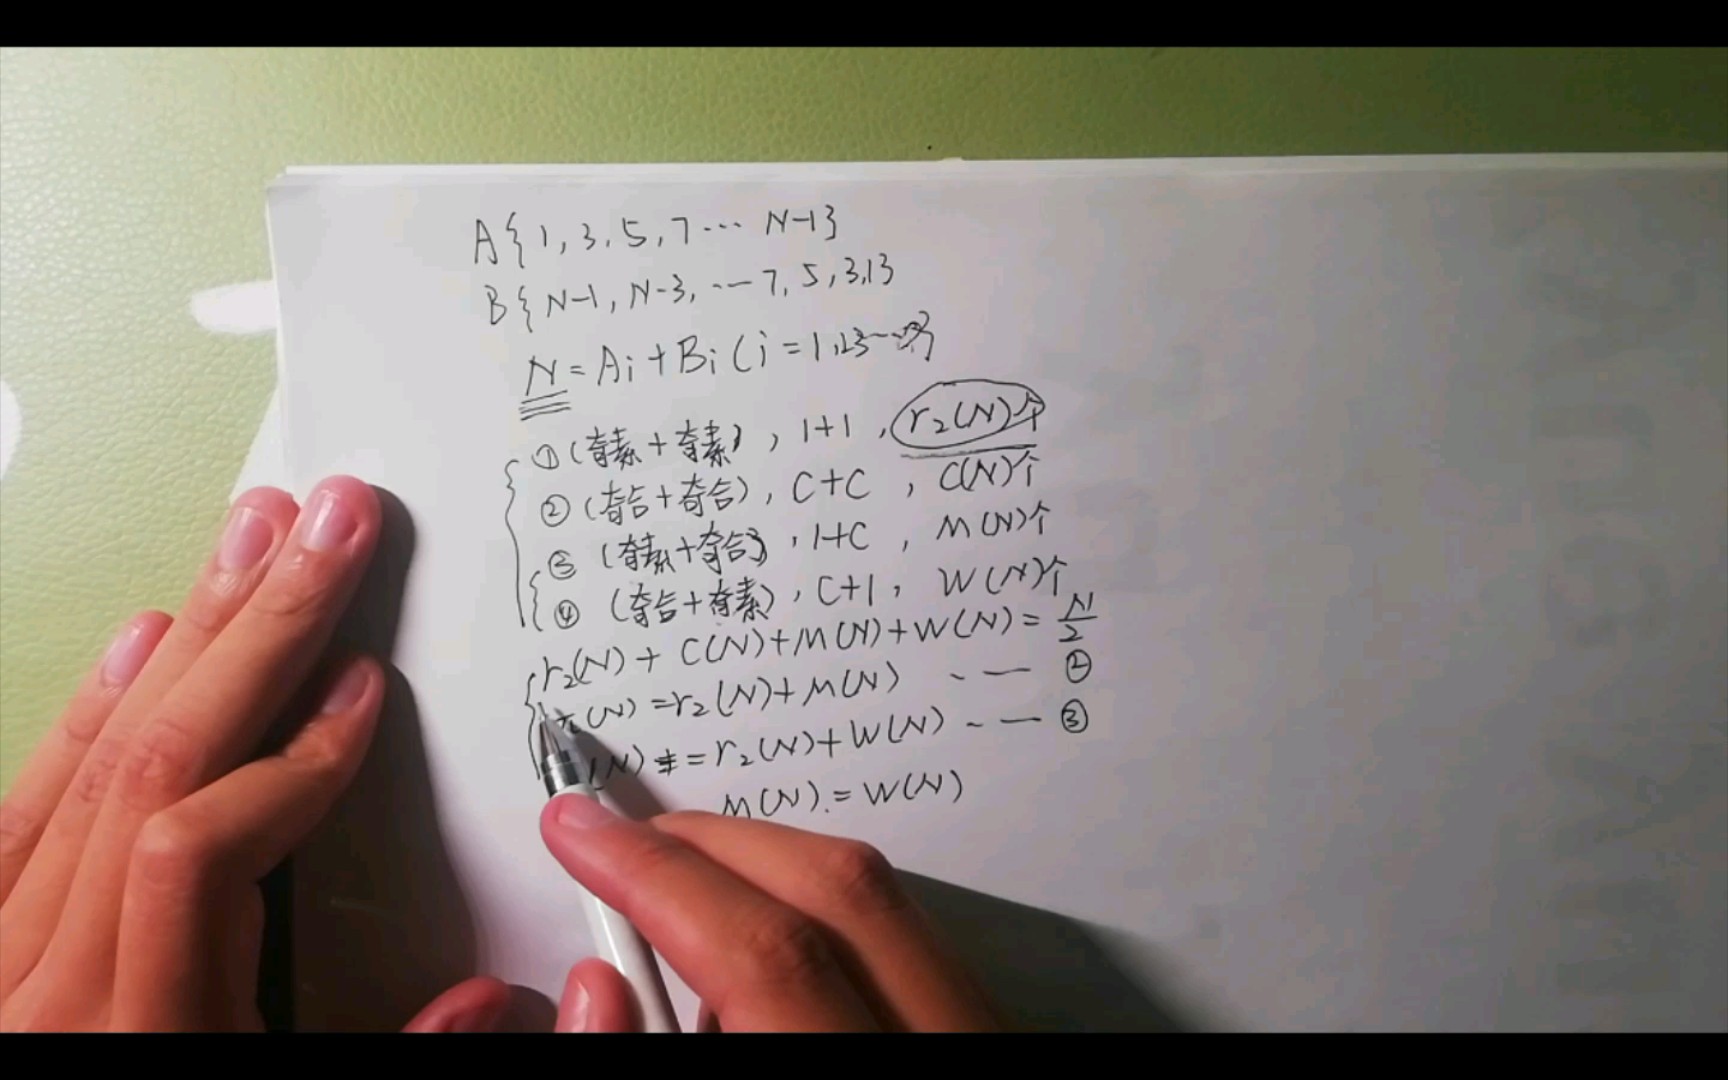 A{1,3,5,7… N-1}
B{N-1,N-3,…7,5,3,1}
N=Ai+Bi(i=1,2,3…
①(奇素+奇素),1+1,r₂(N)个
②(奇合+奇合),C+C,C(N)个
③(奇素+奇合),1+C,M(N)个
④(奇合+奇素),C+1,W(N)个
r₂(N)+C(N)+M(N)+W(N)=N/2
(N)=r₂(N)+M(N) -— ②
(N)=r₂(N)+W(N) -— ③
M(N)=W(N)